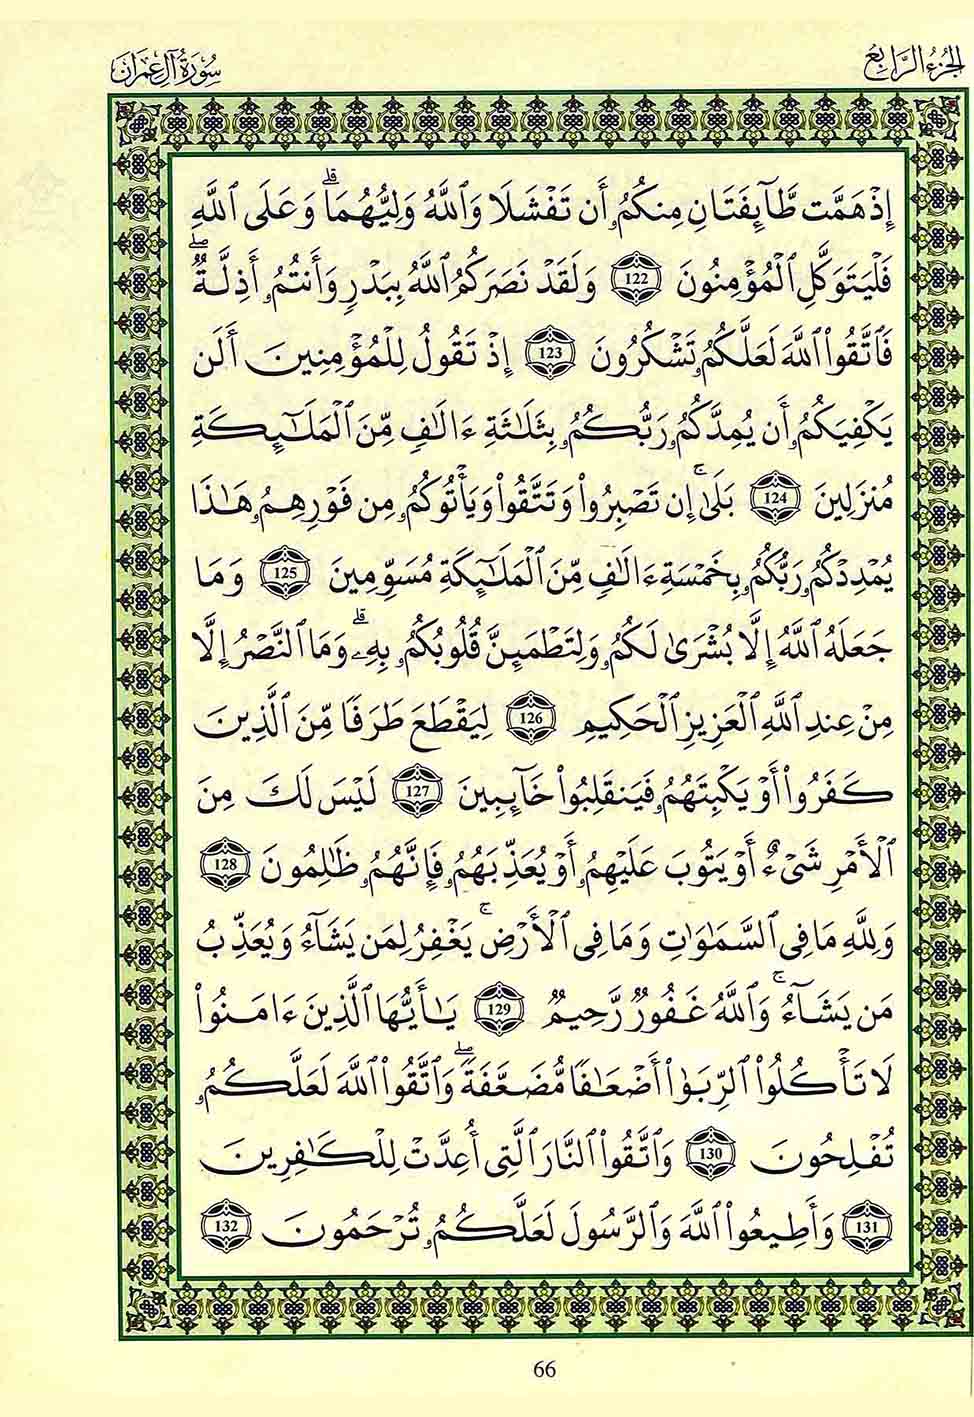 الجزء الرابع
سورة آل عمران
إِذْ هَمَّت طَّآئِفَتَانِ مِنكُمُۥٓ أَن تَفْشَلَا وَٱللَّهُ وَلِيُّهُمَاۗ وَعَلَى ٱللَّهِ
فَلْيَتَوَكَّلِ ٱلْمُؤْمِنُونَ 122 وَلَقَدْ نَصَرَكُمُ ٱللَّهُ بِبَدْرٍ وَأَنتُمُۥٓ أَذِلَّةٌۖ
فَٱتَّقُوا۟ ٱللَّهَ لَعَلَّكُمُۥ تَشْكُرُونَ 123 إِذْ تَقُولُ لِلْمُؤْمِنِينَ أَلَن
يَكْفِيَكُمُۥٓ أَن يُمِدَّكُمُۥ رَبُّكُمُۥ بِثَلَٰثَةِ ءَالَٰفٍ مِّنَ ٱلْمَلَٰٓئِكَةِ
مُنزَلِينَ 124 بَلَىٰٓۚ إِن تَصْبِرُوا۟ وَتَتَّقُوا۟ وَيَأْتُوكُمُۥ مِن فَوْرِهِمُۥ هَٰذَا
يُمْدِدْكُمُۥ رَبُّكُمُۥ بِخَمْسَةِ ءَالَٰفٍ مِّنَ ٱلْمَلَٰٓئِكَةِ مُسَوِّمِينَ 125 وَمَا
جَعَلَهُ ٱللَّهُ إِلَّا بُشْرَىٰ لَكُمُۥ وَلِتَطْمَئِنَّ قُلُوبُكُمُۥ بِهِۦۗ وَمَا ٱلنَّصْرُ إِلَّا
مِنْ عِندِ ٱللَّهِ ٱلْعَزِيزِ ٱلْحَكِيمِ 126 لِيَقْطَعَ طَرَفًا مِّنَ ٱلَّذِينَ
كَفَرُوٓا۟ أَوْ يَكْبِتَهُمُۥ فَيَنقَلِبُوا۟ خَآئِبِينَ 127 لَيْسَ لَكَ مِنَ
ٱلْأَمْرِ شَىْءٌ أَوْ يَتُوبَ عَلَيْهِمُۥٓ أَوْ يُعَذِّبَهُمُۥ فَإِنَّهُمُۥ ظَٰلِمُونَ 128
وَلِلَّهِ مَا فِى ٱلسَّمَٰوَٰتِ وَمَا فِى ٱلْأَرْضِۚ يَغْفِرُ لِمَن يَشَآءُ وَيُعَذِّبُ
مَن يَشَآءُۚ وَٱللَّهُ غَفُورٌ رَّحِيمٌ 129 يَٰٓأَيُّهَا ٱلَّذِينَ ءَامَنُوا۟
لَا تَأْكُلُوا۟ ٱلرِّبَوٰٓا۟ أَضْعَٰفًا مُّضَعَّفَةًۖ وَٱتَّقُوا۟ ٱللَّهَ لَعَلَّكُمُۥ
تُفْلِحُونَ 130 وَٱتَّقُوا۟ ٱلنَّارَ ٱلَّتِىٓ أُعِدَّتْ لِلْكَٰفِرِينَ
131 وَأَطِيعُوا۟ ٱللَّهَ وَٱلرَّسُولَ لَعَلَّكُمُۥ تُرْحَمُونَ 132
66